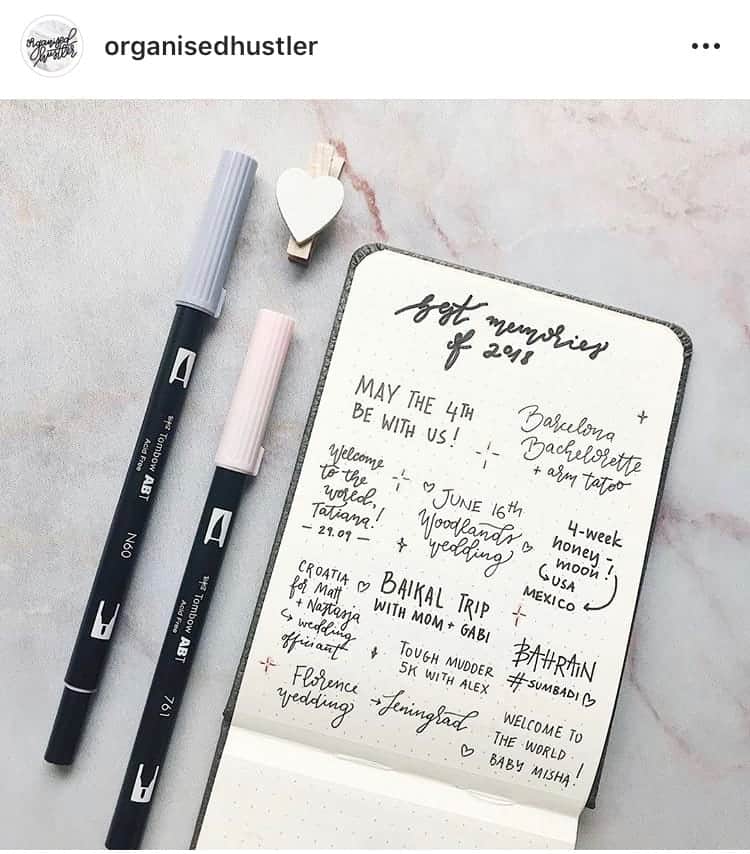 organised
hustler
organisedhustler
best memories
of 2018
MAY THE 4TH
BE WITH US!
Barcelona
Bachelorette
+ arm tatoo
Welcome
to the
world,
Tatiana!
- 29.09 -
JUNE 16th
Woodlands
wedding
4-week
honey-
moon!
USA
MEXICO
CROATIA
for Matt
+ Nastasja
wedding
officiant
BAIKAL TRIP
WITH MOM + GABI
TOUGH MUDDER
5K WITH ALEX
BAHRAIN
#SUMBADI
Florence
wedding
→ Leningrad
WELCOME TO
THE WORLD
BABY MISHA!
Tombow ABT
Acid Free
N60
Tombow ABT
Acid Free
761